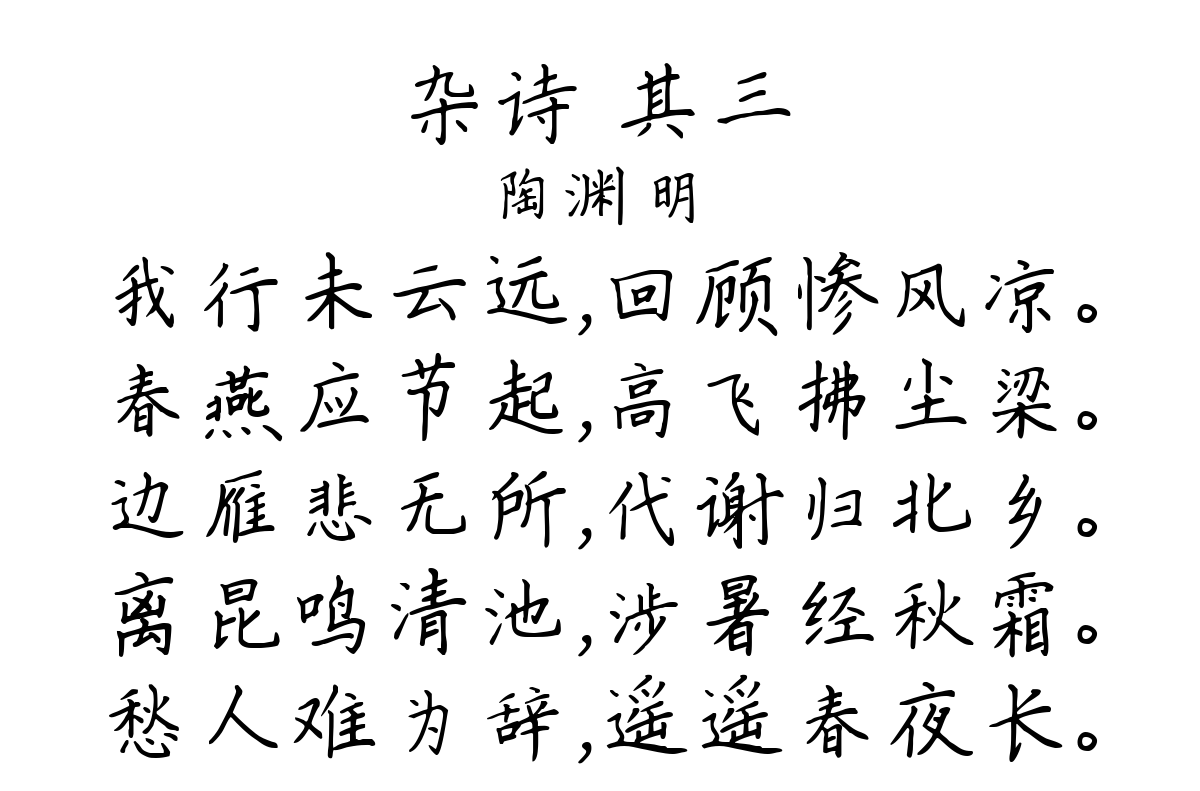 杂诗 其三
陶渊明
我行未云远,回顾惨风凉。
春燕应节起,高飞拂尘梁。
边雁悲无所,代谢归北乡。
离昆鸣清池,涉暑经秋霜。
愁人难为辞,遥遥春夜长。